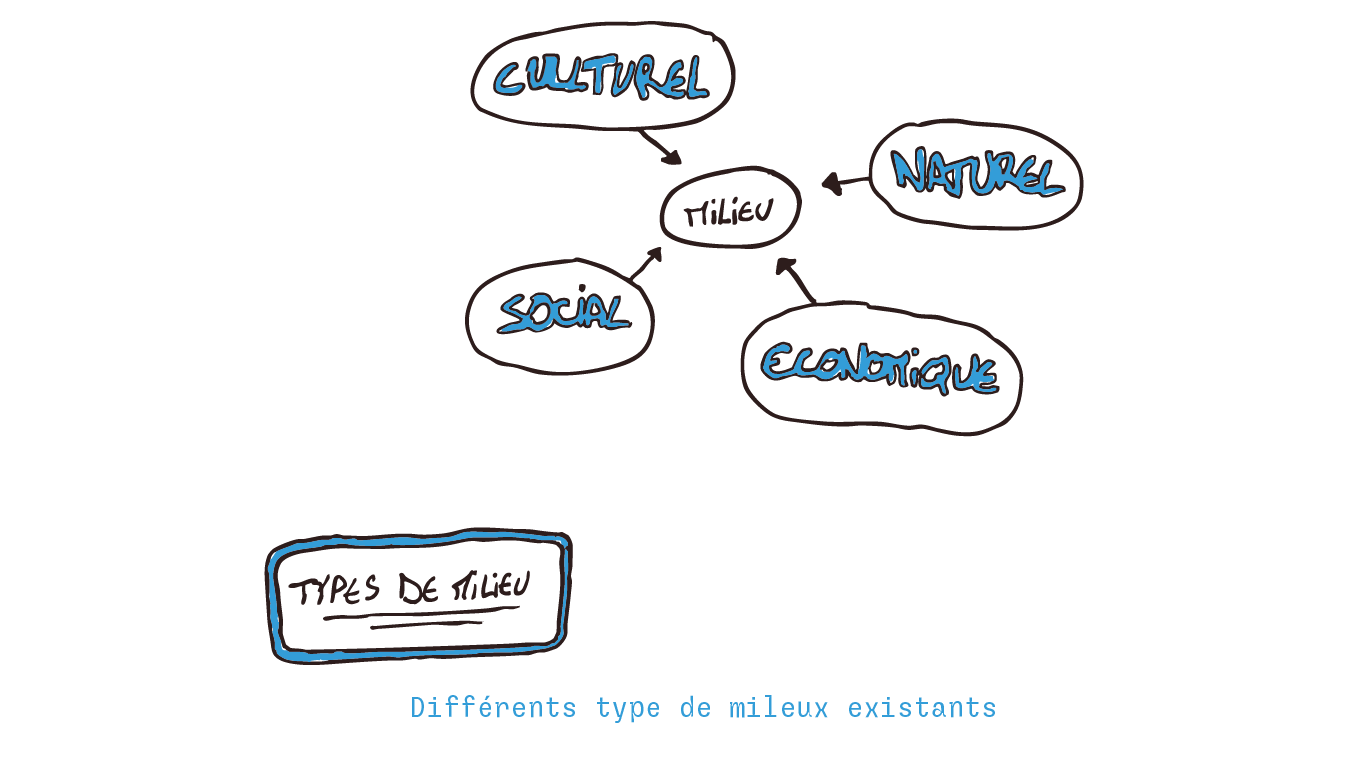 CULTUREL
NATUREL
MiLiEU
SOCiAL
ECONOMiQUE
TYPES DE MiLiEU
Différents type de mileux existants